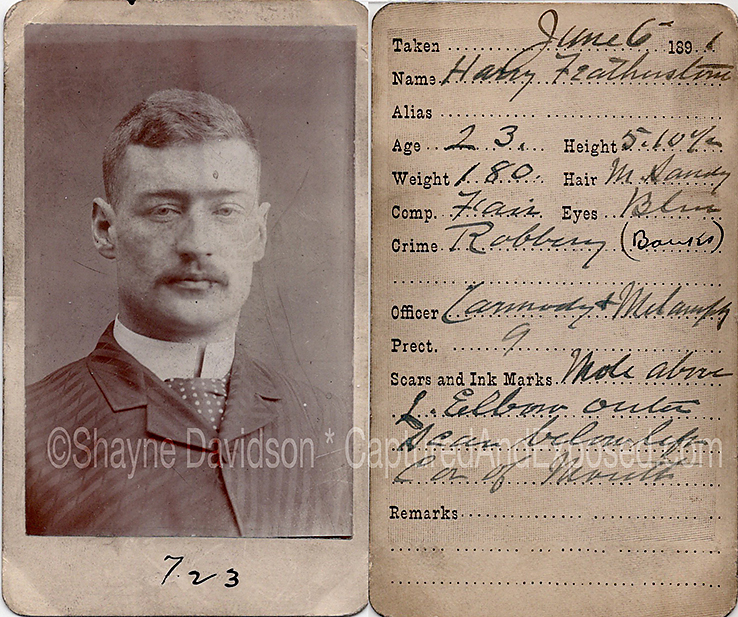 723
Taken June 6 1891
Name Harry Featherstone
Alias
Age 23. Height 5.10½
Weight 180. Hair M. Sandy
Comp. Fair Eyes Blue
Crime Robbery (Banks)
Officer Carmody &
Prect. 9
Scars and Ink Marks Mole above
L. Elbow outer
Scar below left
Cor of Mouth
Remarks
©Shayne Davidson * CapturedAndExposed.com